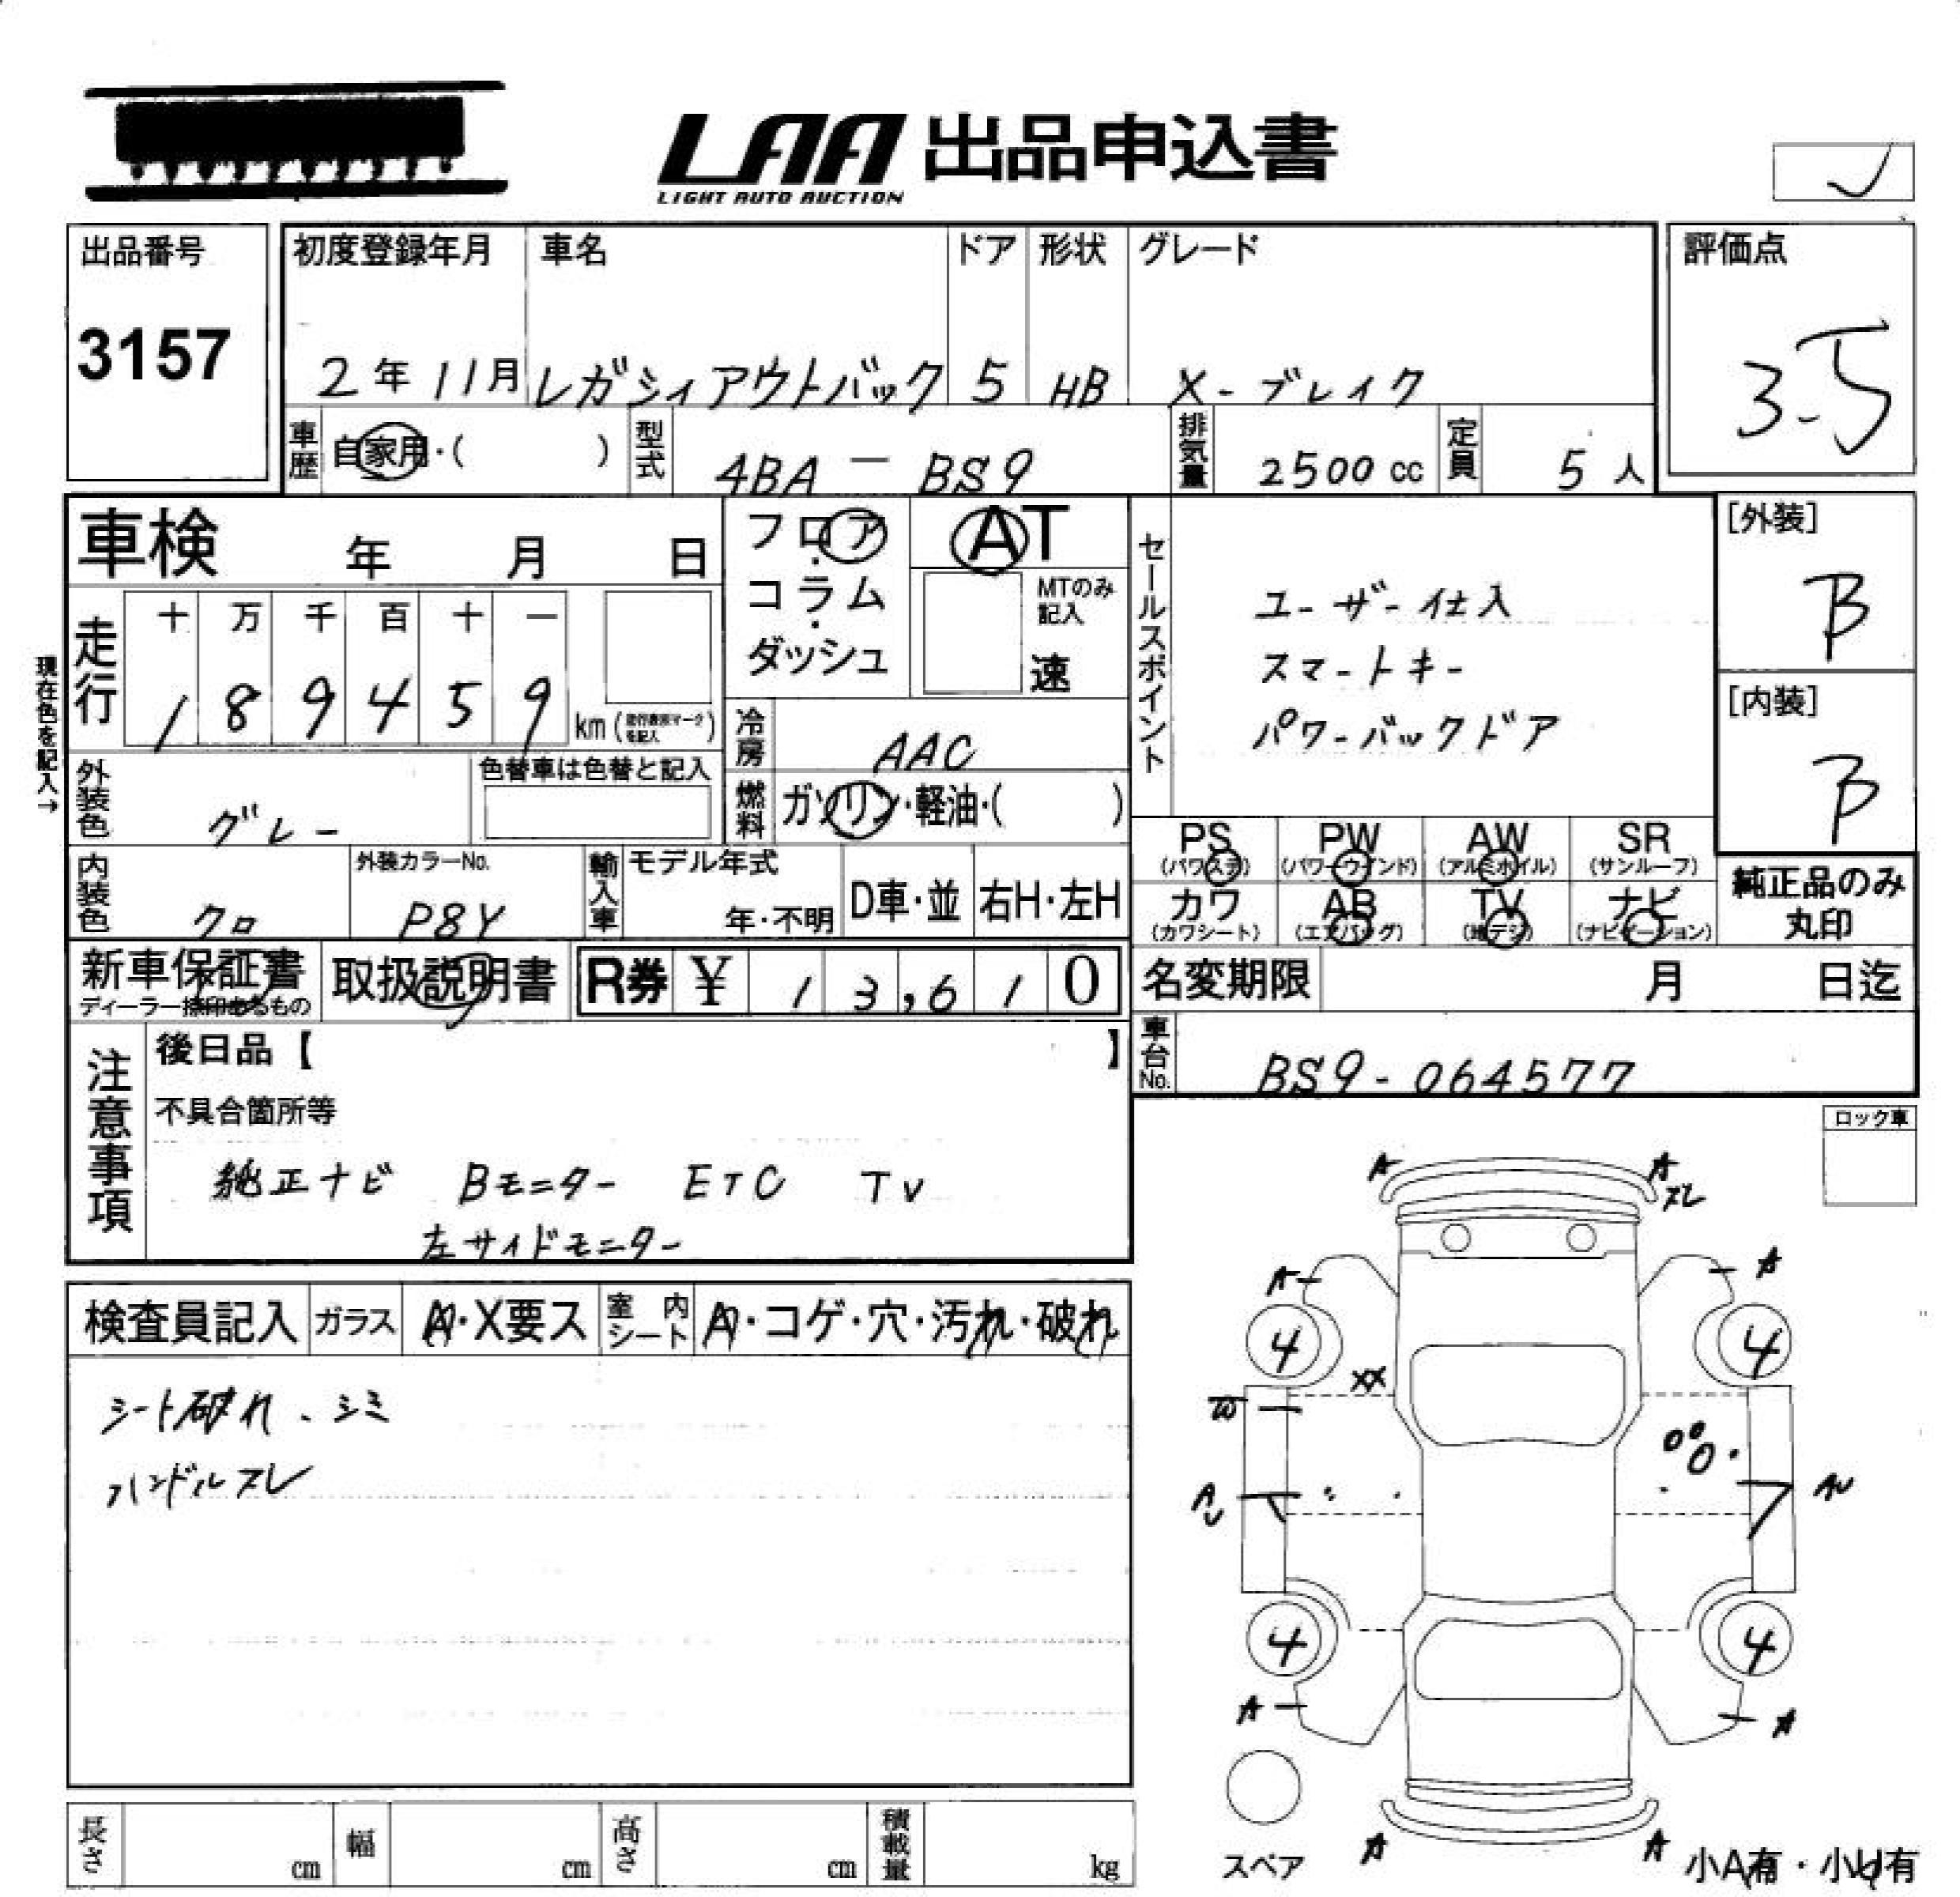 LAA 出品申込書
LIGHT AUTO AUCTION
出品番号
3157
初度登録年月 車名 ドア 形状 グレード
2年11月 レガシィアウトバック 5 HB X-ブレイク
評価点
3.5
車歴 自家用・( ) 型式 4BA-BS9 排気量 2500cc 定員 5人
車検 年 月 日
フロア・コラム・ダッシュ
AT
MTのみ記入
速
セールスポイント
ユーザー仕入
スマートキー
パワーバックドア
[外装]
B
[内装]
B
現在色を記入→
走行 十 万 千 百 十 一
1 8 9 4 5 9 km
冷房 AAC
外装色 グレー
色替車は色替と記入
燃料 ガソリン・軽油・( )
PS (パワステ) PW (パワーウインド) AW (アルミホイル) SR (サンルーフ)
カワ (カワシート) AB (エアバッグ) TV (地デジ) ナビ (ナビゲーション)
純正品のみ丸印
内装色 クロ
外装カラーNo.
P8Y
輸入車 モデル年式
年・不明
D車・並 右H・左H
新車保証書
取扱説明書
R券 ¥ 1 3,6 1 0
名変期限 月 日迄
車台No. BS9-064577
注意事項
後日品【 】
不具合箇所等
純正ナビ Bモニター ETC TV
左サイドモニター
ロック車
検査員記入 ガラス A・X要ス 室内シート A・コゲ・穴・汚れ・破れ
シート破れ、シミ
ハンドルスレ
A A
スレ
A A
4 4
XX
W
A
U
AU
4 4
A A
A A
スペア
小A有・小U有
長さ cm 幅 cm 高さ cm 積載量 kg